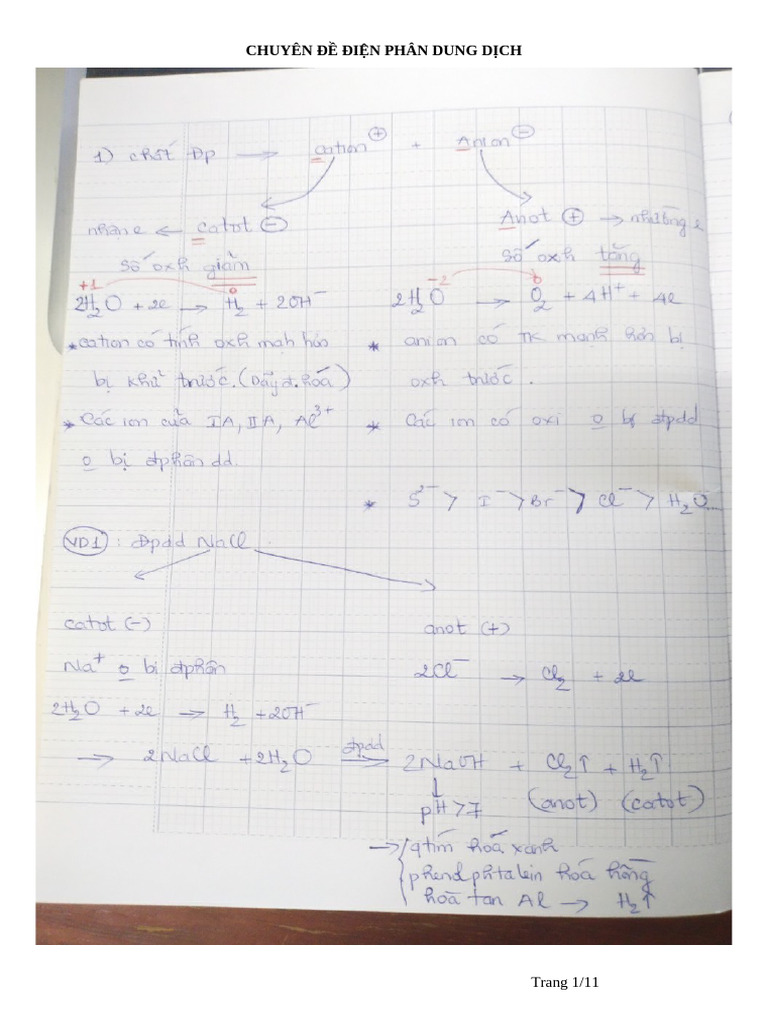 CHUYÊN ĐỀ ĐIỆN PHÂN DUNG DỊCH
1) chất Đp → cation⊕ + Anion⊖
nhận e ← catot ⊖
Anot ⊕ → nhường e
số oxh giảm
số oxh tăng
+1 0
-2 0
2H₂O + 2e → H₂ + 2OH⁻
2H₂O → O₂ + 4H⁺ + 4e
* cation có tính oxh mạnh hơn
bị khử trước. (Dãy đ. hoá)
* anion có TK mạnh hơn bị
oxh trước.
* Các ion của IA, IIA, Al³⁺
o bị đphân dd.
* Các ion có oxi o bị đpdd
* S²⁻ > I⁻ > Br⁻ > Cl⁻ > H₂O...
VD1 : Đpdd NaCl.
catot (-)
anot (+)
Na⁺ o bị đphân
2Cl⁻ → Cl₂ + 2e
2H₂O + 2e → H₂ + 2OH⁻
→ 2NaCl + 2H₂O đpdd → 2NaOH + Cl₂↑ + H₂↑
(anot) (catot)
↓
pH > 7
→ { qtím hoá xanh
phenolphtalein hoá hồng
hoà tan Al → H₂↑
Trang 1/11